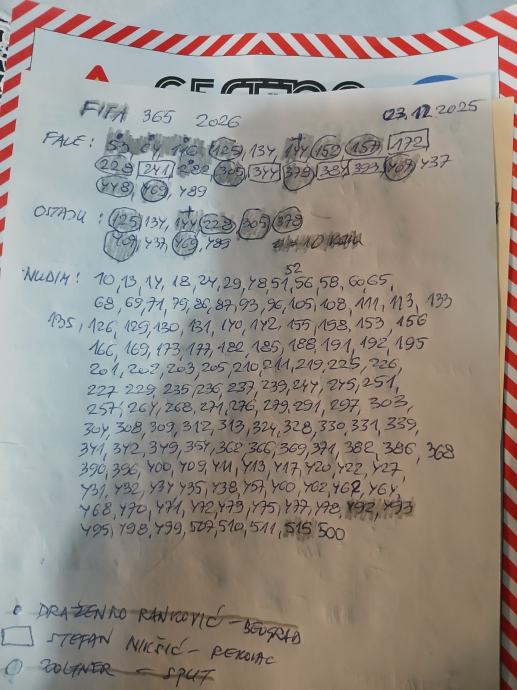 FIFA 365 2026 23.12.2025
FALE: 53, 64, 116, 125, 134, 144, 152, 157, 172
228, 241, 282, 305, 344, 378, 384, 393, 407, 437
448, 469, 489
OSTAJU: 125, 134, 144, 228, 305, 378
407, 437, 469, 489
NUDIM: 10, 13, 14, 18, 24, 29, 48, 51, 52, 56, 58, 60, 65,
68, 69, 71, 79, 86, 87, 93, 96, 105, 108, 111, 113, 133
135, 126, 129, 130, 131, 140, 142, 155, 158, 153, 156
166, 169, 173, 177, 182, 185, 188, 191, 192, 195
201, 202, 203, 205, 210, 211, 219, 225, 226,
227, 229, 235, 236, 237, 239, 244, 245, 251,
257, 264, 268, 271, 276, 279, 291, 297, 303,
304, 308, 309, 312, 313, 324, 328, 330, 331, 339,
341, 342, 349, 354, 362, 366, 369, 371, 382, 386, 368
390, 396, 400, 409, 411, 413, 417, 420, 422, 427
431, 432, 434, 435, 438, 457, 460, 462, 462, 464
468, 470, 471, 472, 473, 475, 477, 478, 492, 493
495, 498, 499, 507, 510, 511, 515 500
DRAŽENKO RANKOVIĆ - BEOGRAD
STEFAN NIKŠIĆ - REKOVAC
ZOLTNER - SPLIT